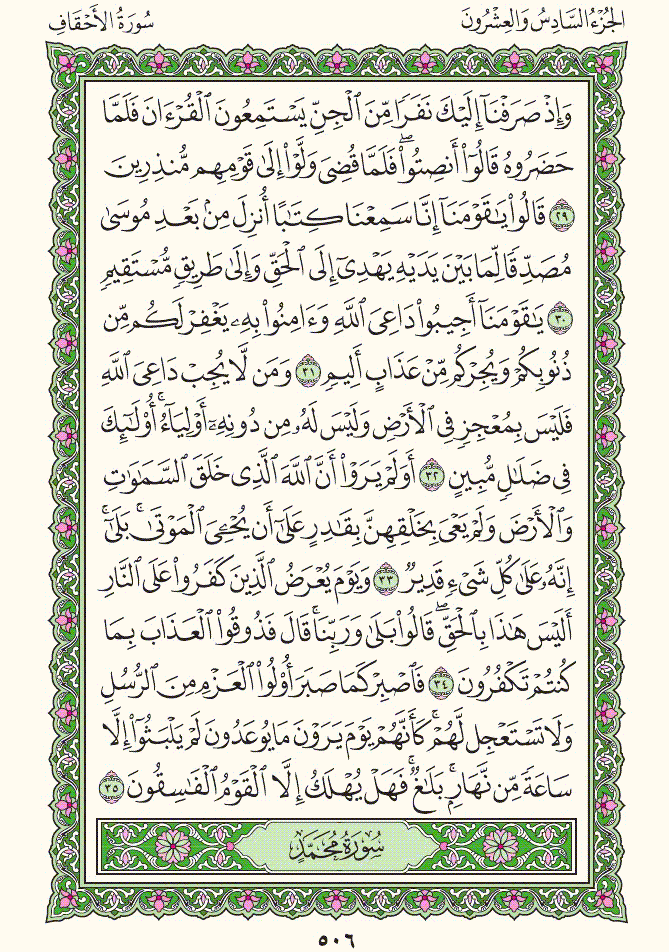 الجُزْءُ السَّادِسُ وَالعِشْرُونَ
سُورَةُ الأَحْقَافِ
وَإِذْ صَرَفْنَآ إِلَيْكَ نَفَرًا مِّنَ ٱلْجِنِّ يَسْتَمِعُونَ ٱلْقُرْءَانَ فَلَمَّا
حَضَرُوهُ قَالُوٓا۟ أَنصِتُوا۟ ۖ فَلَمَّا قُضِىَ وَلَّوْا۟ إِلَىٰ قَوْمِهِم مُّنذِرِينَ
٢٩ قَالُوا۟ يَـٰقَوْمَنَآ إِنَّا سَمِعْنَا كِتَـٰبًا أُنزِلَ مِنۢ بَعْدِ مُوسَىٰ
مُصَدِّقًا لِّمَا بَيْنَ يَدَيْهِ يَهْدِىٓ إِلَى ٱلْحَقِّ وَإِلَىٰ طَرِيقٍ مُّسْتَقِيمٍ
٣٠ يَـٰقَوْمَنَآ أَجِيبُوا۟ دَاعِىَ ٱللَّهِ وَءَامِنُوا۟ بِهِۦ يَغْفِرْ لَكُم مِّن
ذُنُوبِكُمْ وَيُجِرْكُم مِّنْ عَذَابٍ أَلِيمٍ ٣١ وَمَن لَّا يُجِبْ دَاعِىَ ٱللَّهِ
فَلَيْسَ بِمُعْجِزٍ فِى ٱلْأَرْضِ وَلَيْسَ لَهُۥ مِن دُونِهِۦٓ أَوْلِيَآءُ ۚ أُو۟لَـٰٓئِكَ
فِى ضَلَـٰلٍ مُّبِينٍ ٣٢ أَوَلَمْ يَرَوْا۟ أَنَّ ٱللَّهَ ٱلَّذِى خَلَقَ ٱلسَّمَـٰوَٰتِ
وَٱلْأَرْضَ وَلَمْ يَعْىَ بِخَلْقِهِنَّ بِقَـٰدِرٍ عَلَىٰٓ أَن يُحْـِۧىَ ٱلْمَوْتَىٰ ۚ بَلَىٰٓ
إِنَّهُۥ عَلَىٰ كُلِّ شَىْءٍ قَدِيرٌ ٣٣ وَيَوْمَ يُعْرَضُ ٱلَّذِينَ كَفَرُوا۟ عَلَى ٱلنَّارِ
أَلَيْسَ هَـٰذَا بِٱلْحَقِّ ۖ قَالُوا۟ بَلَىٰ وَرَبِّنَا ۚ قَالَ فَذُوقُوا۟ ٱلْعَذَابَ بِمَا
كُنتُمْ تَكْفُرُونَ ٣٤ فَٱصْبِرْ كَمَا صَبَرَ أُو۟لُوا۟ ٱلْعَزْمِ مِنَ ٱلرُّسُلِ
وَلَا تَسْتَعْجِل لَّهُمْ ۚ كَأَنَّهُمْ يَوْمَ يَرَوْنَ مَا يُوعَدُونَ لَمْ يَلْبَثُوٓا۟ إِلَّا
سَاعَةً مِّن نَّهَارٍۭ ۚ بَلَـٰغٌ ۚ فَهَلْ يُهْلَكُ إِلَّا ٱلْقَوْمُ ٱلْفَـٰسِقُونَ ٣٥
سُورَةُ مُحَمَّدٍ
٥٠٦